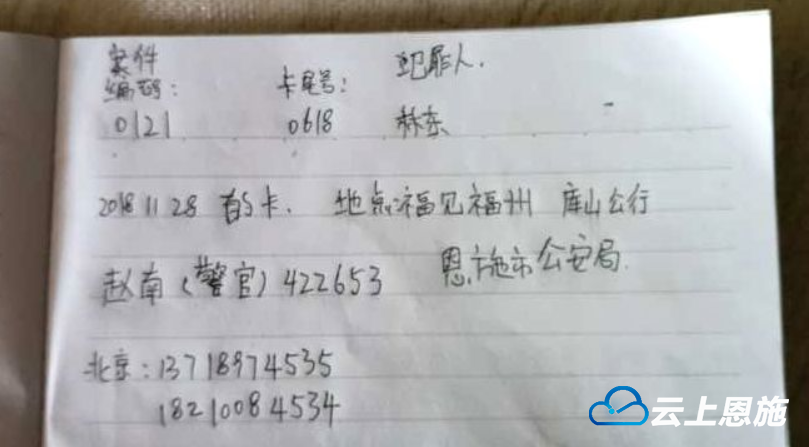 案件
编号： 卡尾号： 犯罪人.
0121 0618 林东
2018 11 28 的卡. 地点:福见福州 库山公行
赵南(警官)422653 恩施市公安局.
北京:13718974535
18210084534
云上恩施